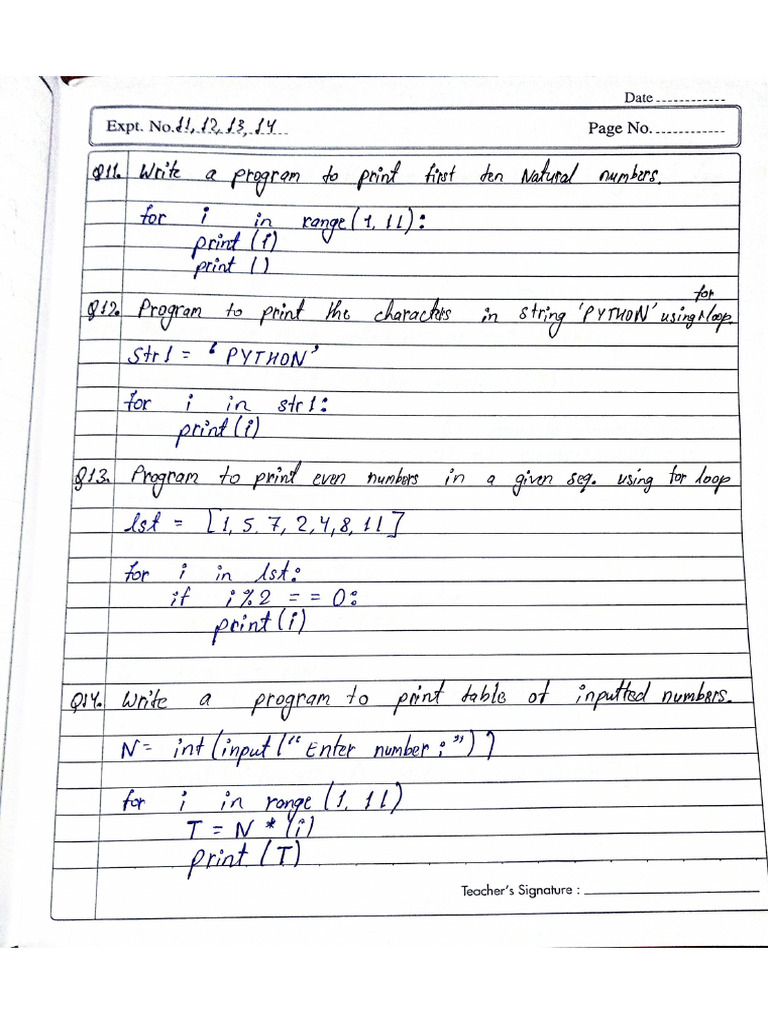 Date ............
Expt. No. 11, 12, 13, 14 Page No. ............
Q11. Write a program to print first ten Natural numbers.
for i in range(1, 11):
print (i)
print ()
for
Q12. Program to print the characters in string 'PYTHON' using ^ loop.
Str1 = 'PYTHON'
for i in str1:
print(i)
Q13. Program to print even numbers in a given seq. using for loop
lst = [1, 5, 7, 2, 4, 8, 11]
for i in lst:
if i%2 = = 0:
print(i)
Q14. Write a program to print table of inputted numbers.
N = int(input("Enter number : "))
for i in range (1, 11)
T = N * (i)
print (T)
Teacher's Signature :